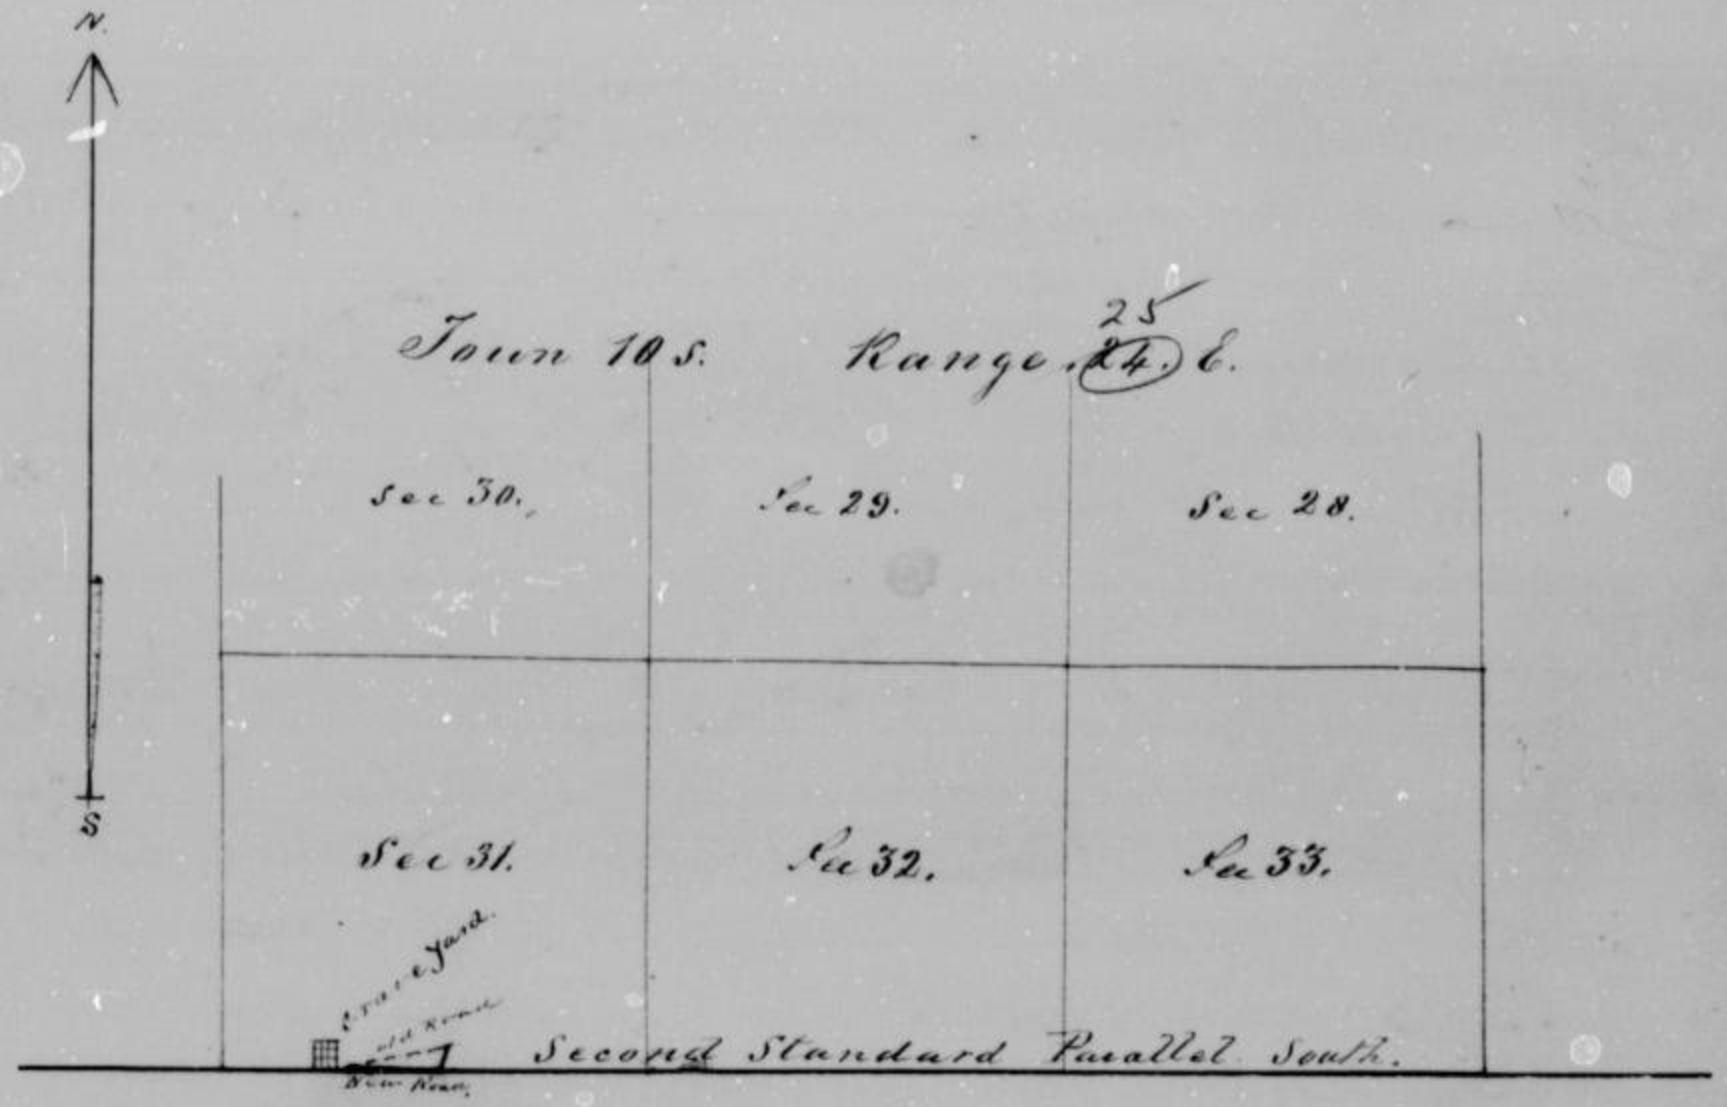 N.
25
Town 10 S. Range 24. E.
Sec 30.
Sec 29.
Sec 28.
S
Sec 31.
Sec 32.
Sec 33.
Grave Yard.
old Road
Second Standard Parallel South.
New Road.